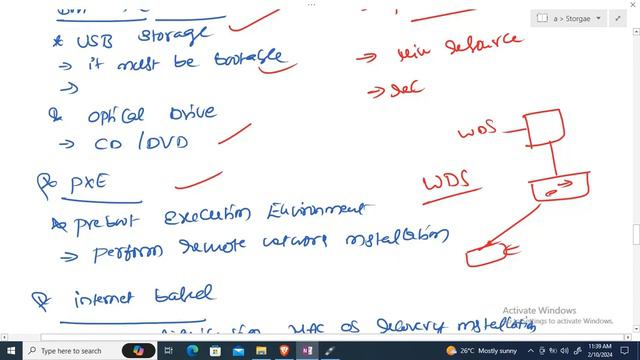 a > Storgae
* USB Storage
→ it must be bootable
→
min resource
→ Rec
* optical Drive
→ CD / DVD
WDS
PXE
WDS
* preboot execution Environment
→ perform remote network installation
internet baked
MAC os recovery installation
Activate Windows
Go to Settings to activate Windows.
Type here to search
26°C Mostly sunny
11:39 AM
2/10/2024